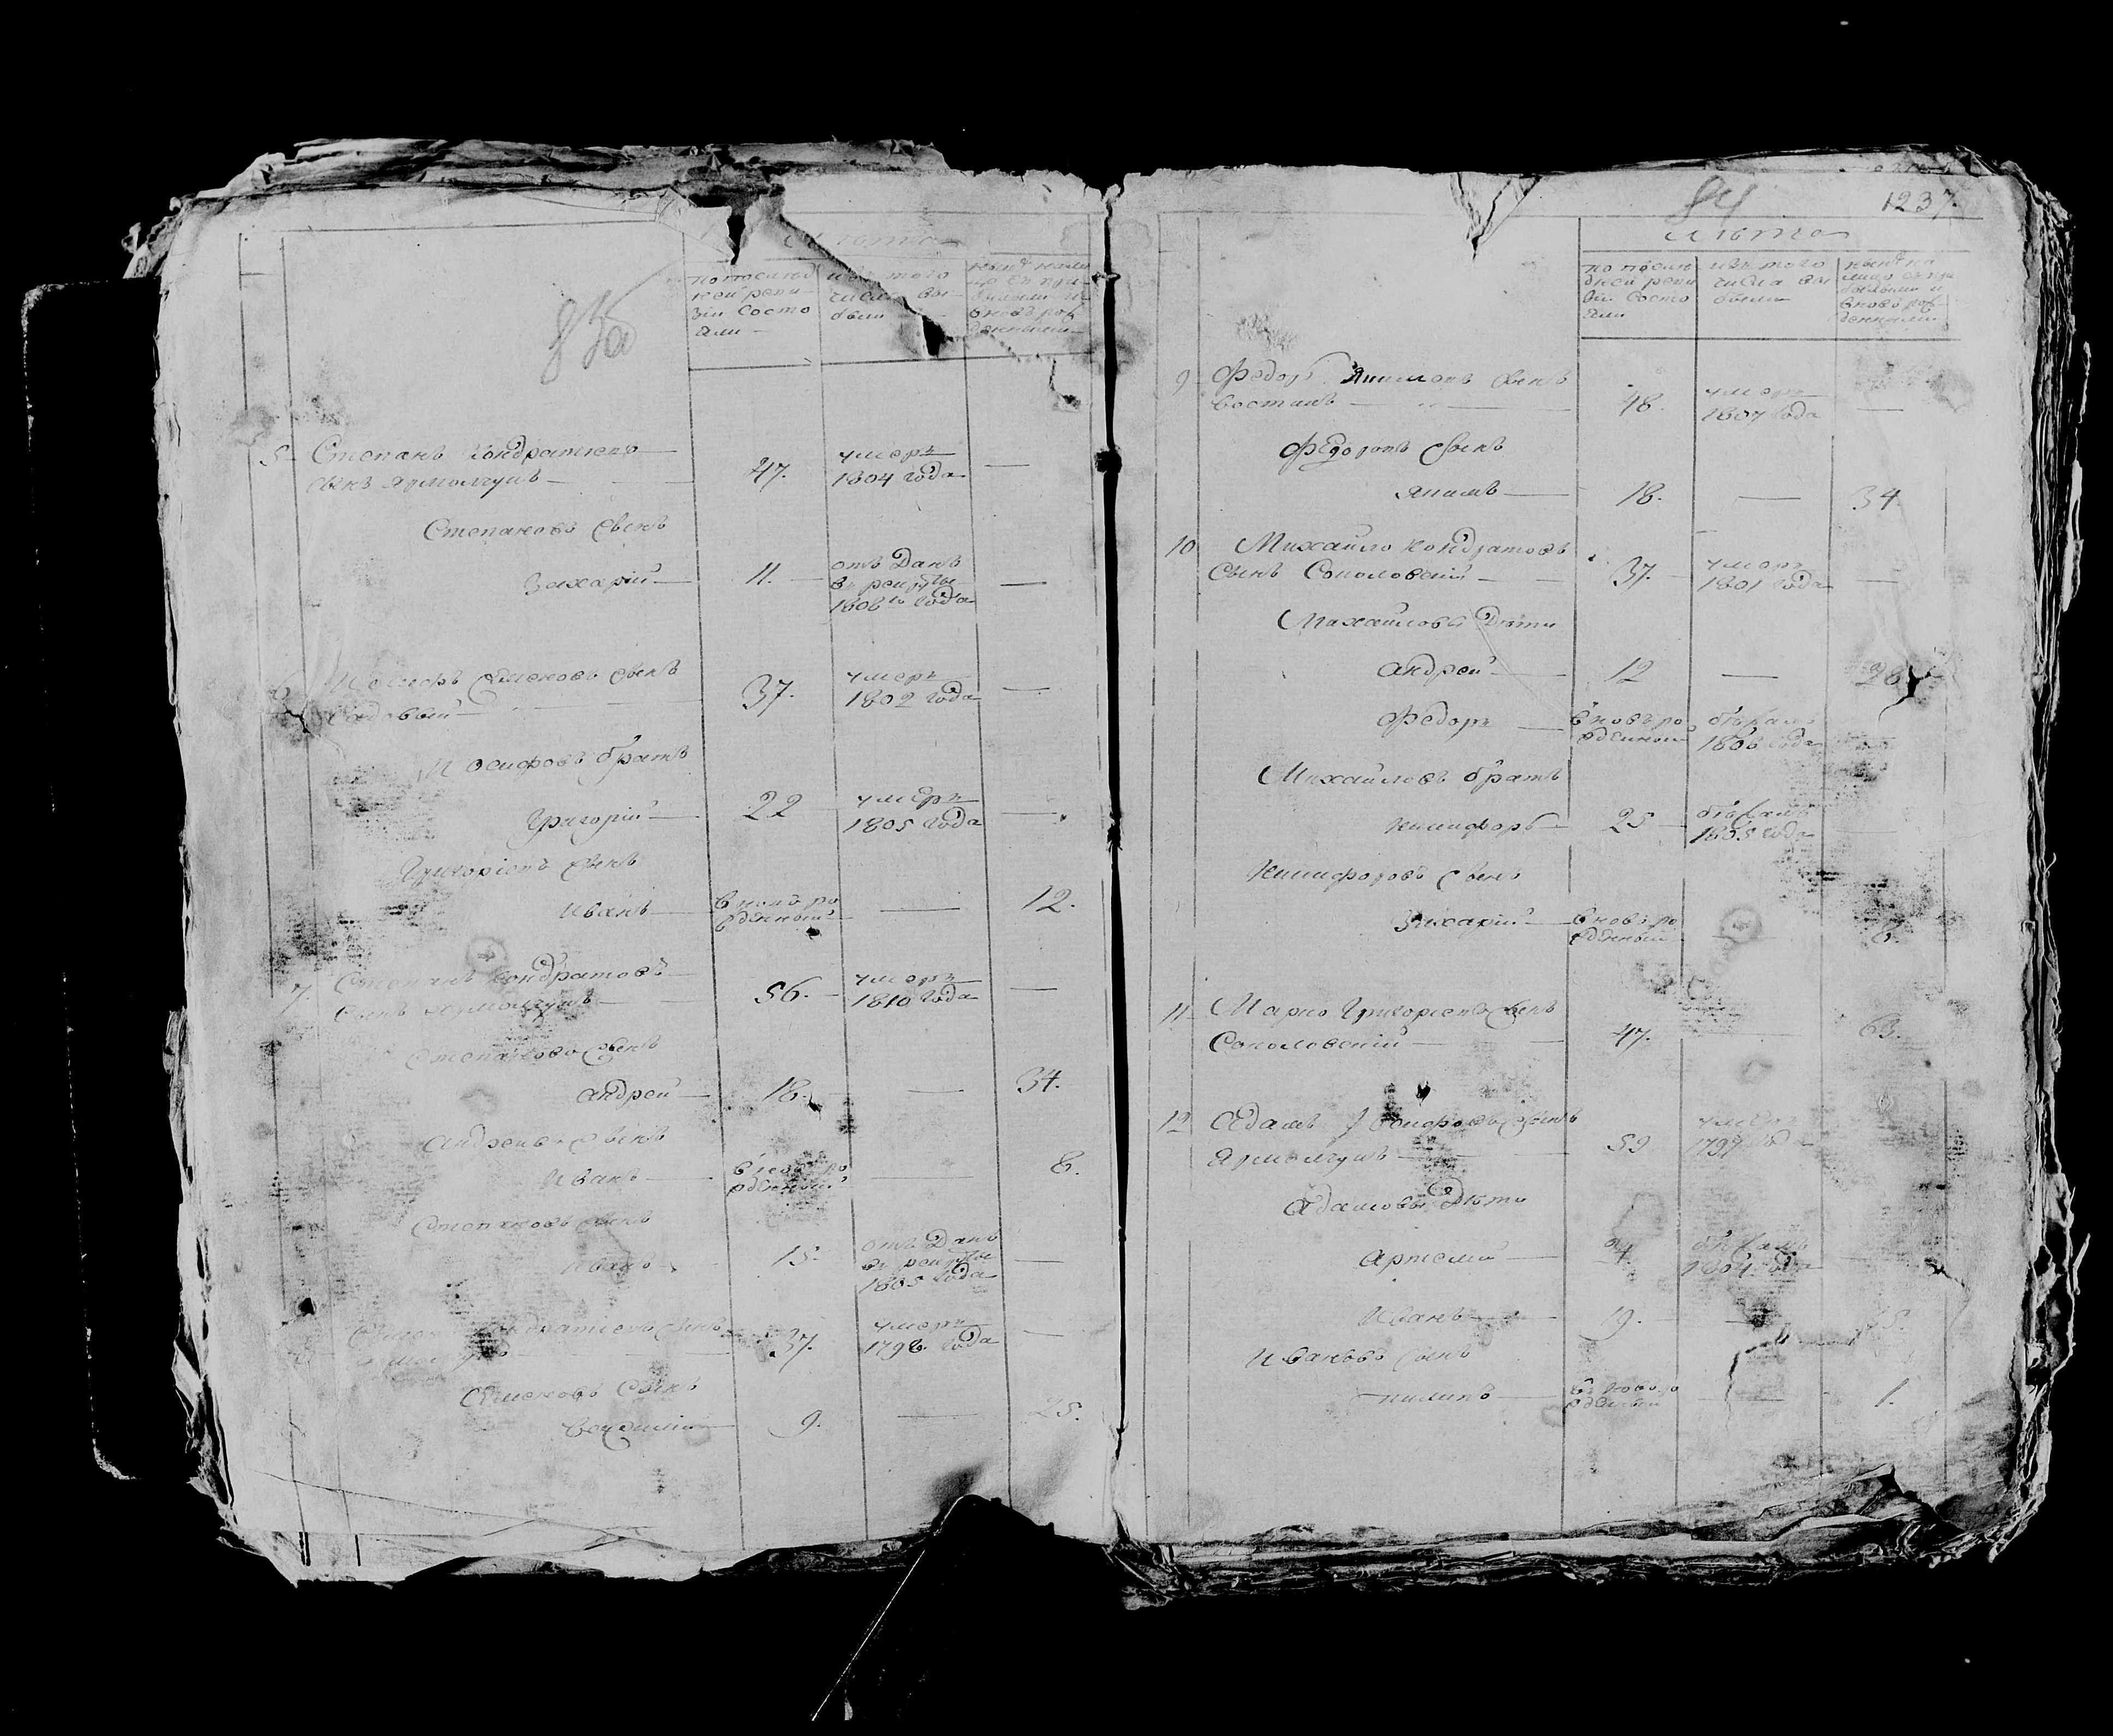 лѣта
по послѣд
ней реви
зіи состо
яли
изъ того
числа вы
были
5 Степанъ Кондратьевъ
сынъ Ярмолчукъ 47. умеръ
1804 года
Степановъ сынъ
Захарій 11. отъ данъ
въ рекруты
1808го года
сынъ
Садовый 37. умеръ
1802 года
Иосифовъ братъ
Григорій 22 умеръ
1805 года
Григоріевъ сынъ
Иванъ вновъ ро
жденный 12.
7. Степанъ Кондратовъ
сынъ 56. умеръ
1810 года
Степановъ сынъ
Андрей 18. 34.
Андреевъ сынъ
Иванъ вновъ ро
жденный 8.
Степановъ сынъ
Иванъ 15. отъ данъ
въ рекруты
1805 года
сынъ
37. умеръ
1798 года
Семеновъ сынъ
9. 25.
84 1237.
лѣта
по послѣ
дней реви
зіи состо
яли
изъ того
числа вы
были
нынѣ на
лицо съ при
былыми и
вновъ рож
денными
9 Федоръ Якимовъ сынъ
48. умеръ
1807 года
Федоровъ сынъ
Якимъ 18. 34
10 Михайло Кондратовъ
сынъ Соколовскій 37. умеръ
1801 года
Михайловы дѣти
Андрей 12 28
Федоръ вновъ ро
жденный бѣжалъ
1806 года
Михайловъ братъ
Никифоръ 25 бѣжалъ
1805 года
Никифоровъ сынъ
Захарій вновъ ро
жденный 8.
11 Марко Григорьевъ сынъ
Соколовскій 47. 63.
12 Адамъ Іосифовъ сынъ
Ярмолчукъ 59 умеръ
1797 года
Адамовы дѣти
Артемій бѣжалъ
1804 года
Иванъ 19.
Ивановъ сынъ
Пилипъ вновъ ро
жденный 1.